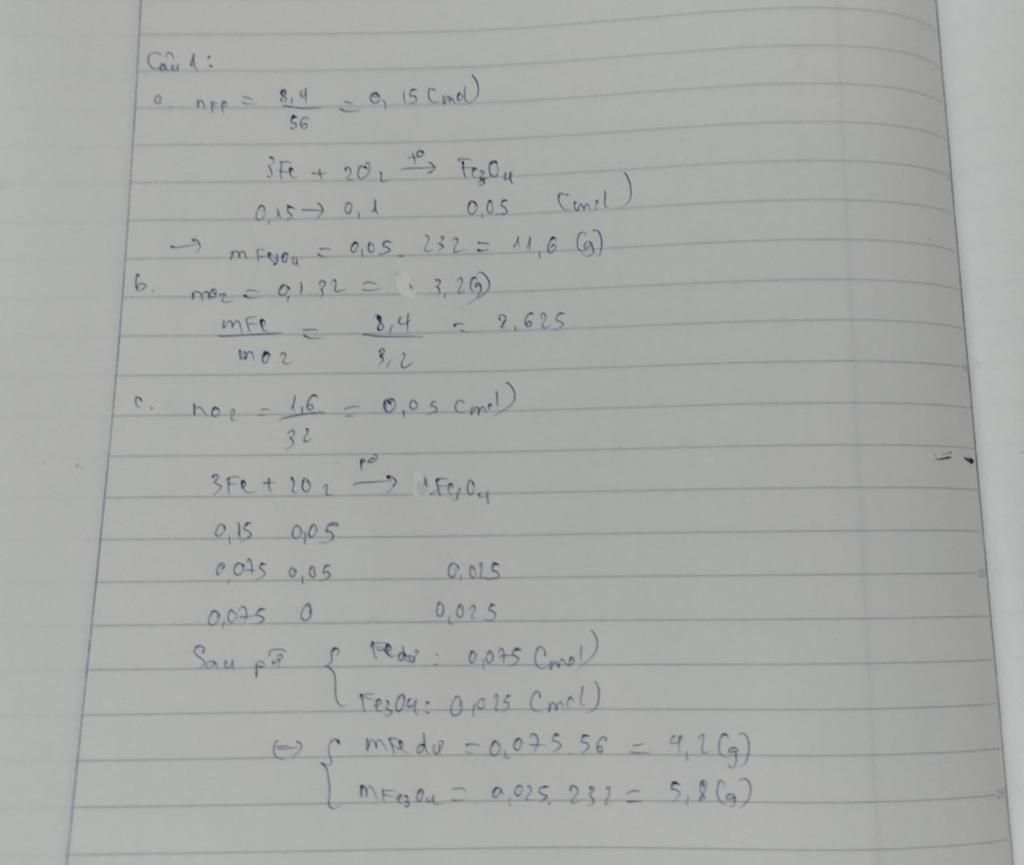 Câu 1:
a. nFe = 8,4/56 = 0,15 (mol)
3Fe + 2O2 t° → Fe3O4
0,15 → 0,1 0,05 (mol)
→ mFe3O4 = 0,05. 232 = 11,6 (g)
b. mO2 = 0,1.32 = 3,2(g)
mFe/mO2 = 8,4/3,2 = 2.625
c. nO2 = 1,6/32 = 0,05 (mol)
3Fe + 2O2 t° → 1Fe3O4
0,15 0,05
0,075 0,05 0,025
0,075 0 0,025
Sau pứ { Fe dư : 0,075 (mol)
Fe3O4: 0,025 (mol)
⇔ { mFe dư = 0,075.56 = 4,2 (g)
mFe3O4 = 0,025.232 = 5,8 (g)